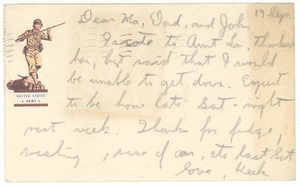 19 Sept.
Dear Mo, Dad, and John
I wrote to Aunt La, thanked
her, but said that I would
be unable to get down. Expect
to be home late Sat. night
next week. Thanks for fudge,
visiting, use of car, etc last Sat
UNITED STATES
ARMY
Love, Keck